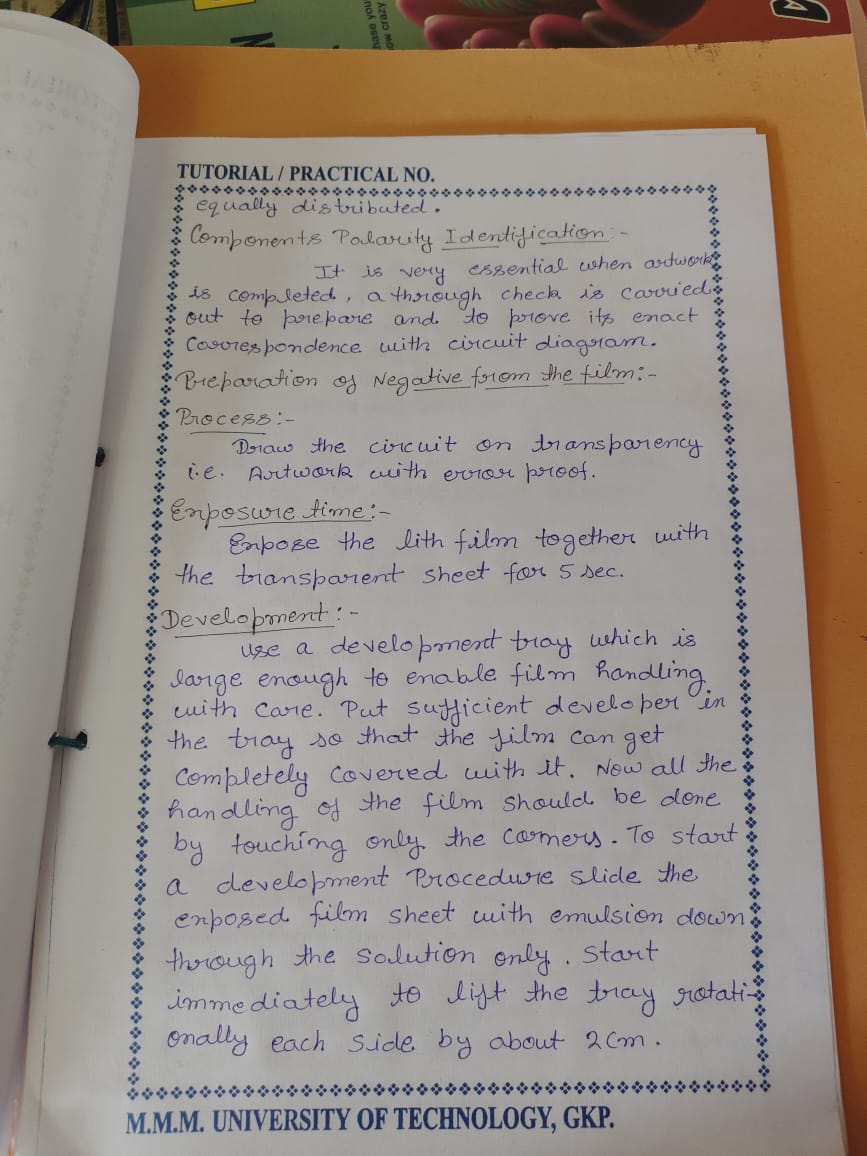 TUTORIAL / PRACTICAL NO.
equally distributed.
Components Polarity Identification:-
It is very essential when artwork
is completed, a through check is carried
out to prepare and to prove its exact
Correspondence with circuit diagram.
Preparation of Negative from the film:-
Process:-
Draw the circuit on transparency
i.e. Artwork with error proof.
Exposure time:-
Expose the lith film together with
the transparent sheet for 5 sec.
Development:-
use a development tray which is
large enough to enable film handling
with care. Put sufficient developer in
the tray so that the film can get
Completely Covered with it. Now all the
handling of the film should be done
by touching only the corners. To start
a development Procedure slide the
exposed film sheet with emulsion down
through the solution only. Start
immediately to lift the tray rotati-
onally each side by about 2cm.
M.M.M. UNIVERSITY OF TECHNOLOGY, GKP.